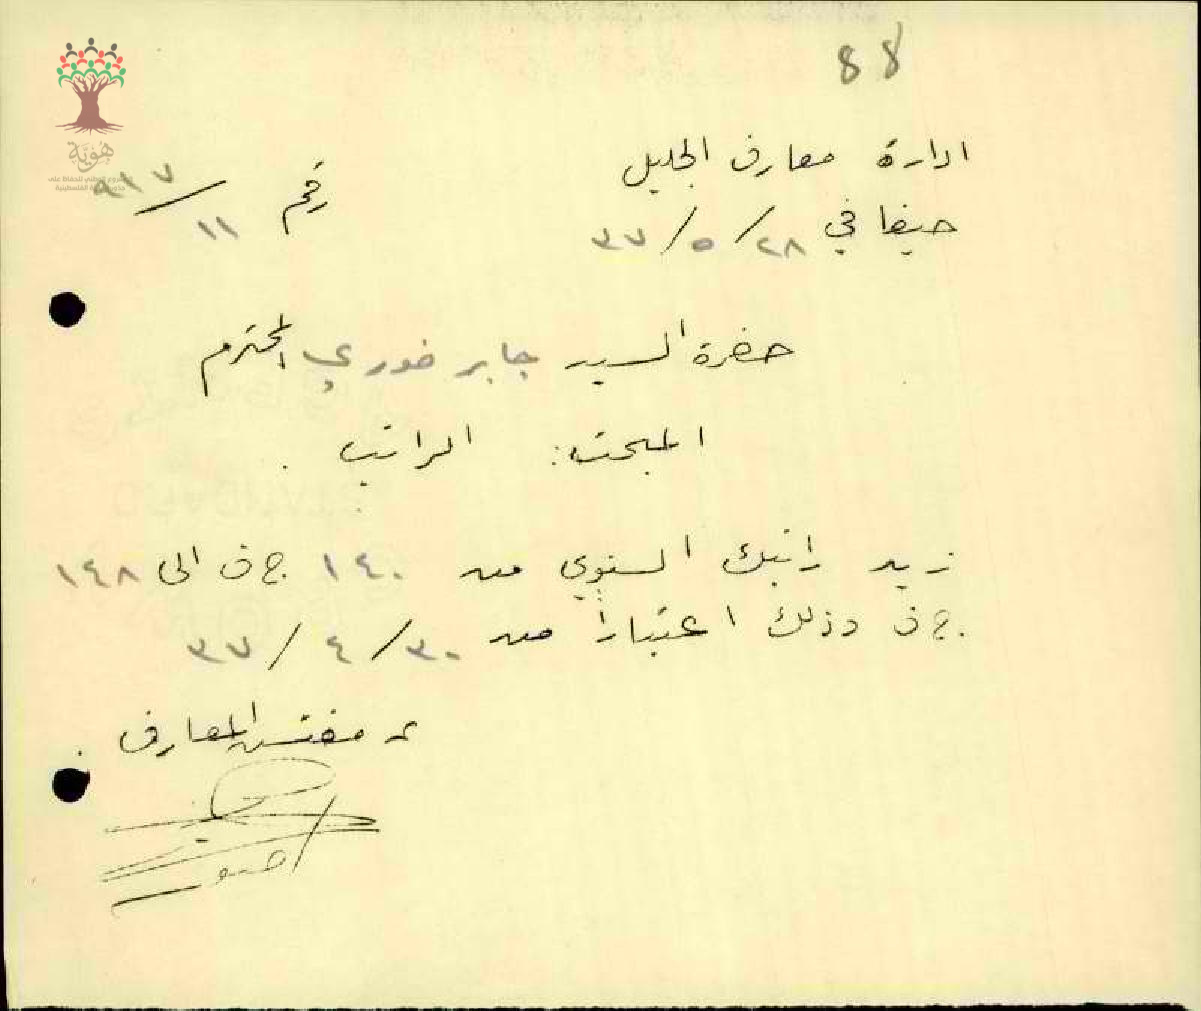 88
ادارة معارف الجليل
رقم ٩٢٧/١١
حيفا في ٢٨/٥/٣٧
حضرة السيد جابر خوري المحترم
المبحث: الراتب.
زيد راتبك السنوي من ١٤٠ ج ف الى ١٤٨
ج ف وذلك اعتباراً من ٣٠/٤/٣٧
ع مفتش المعارف.
هوية